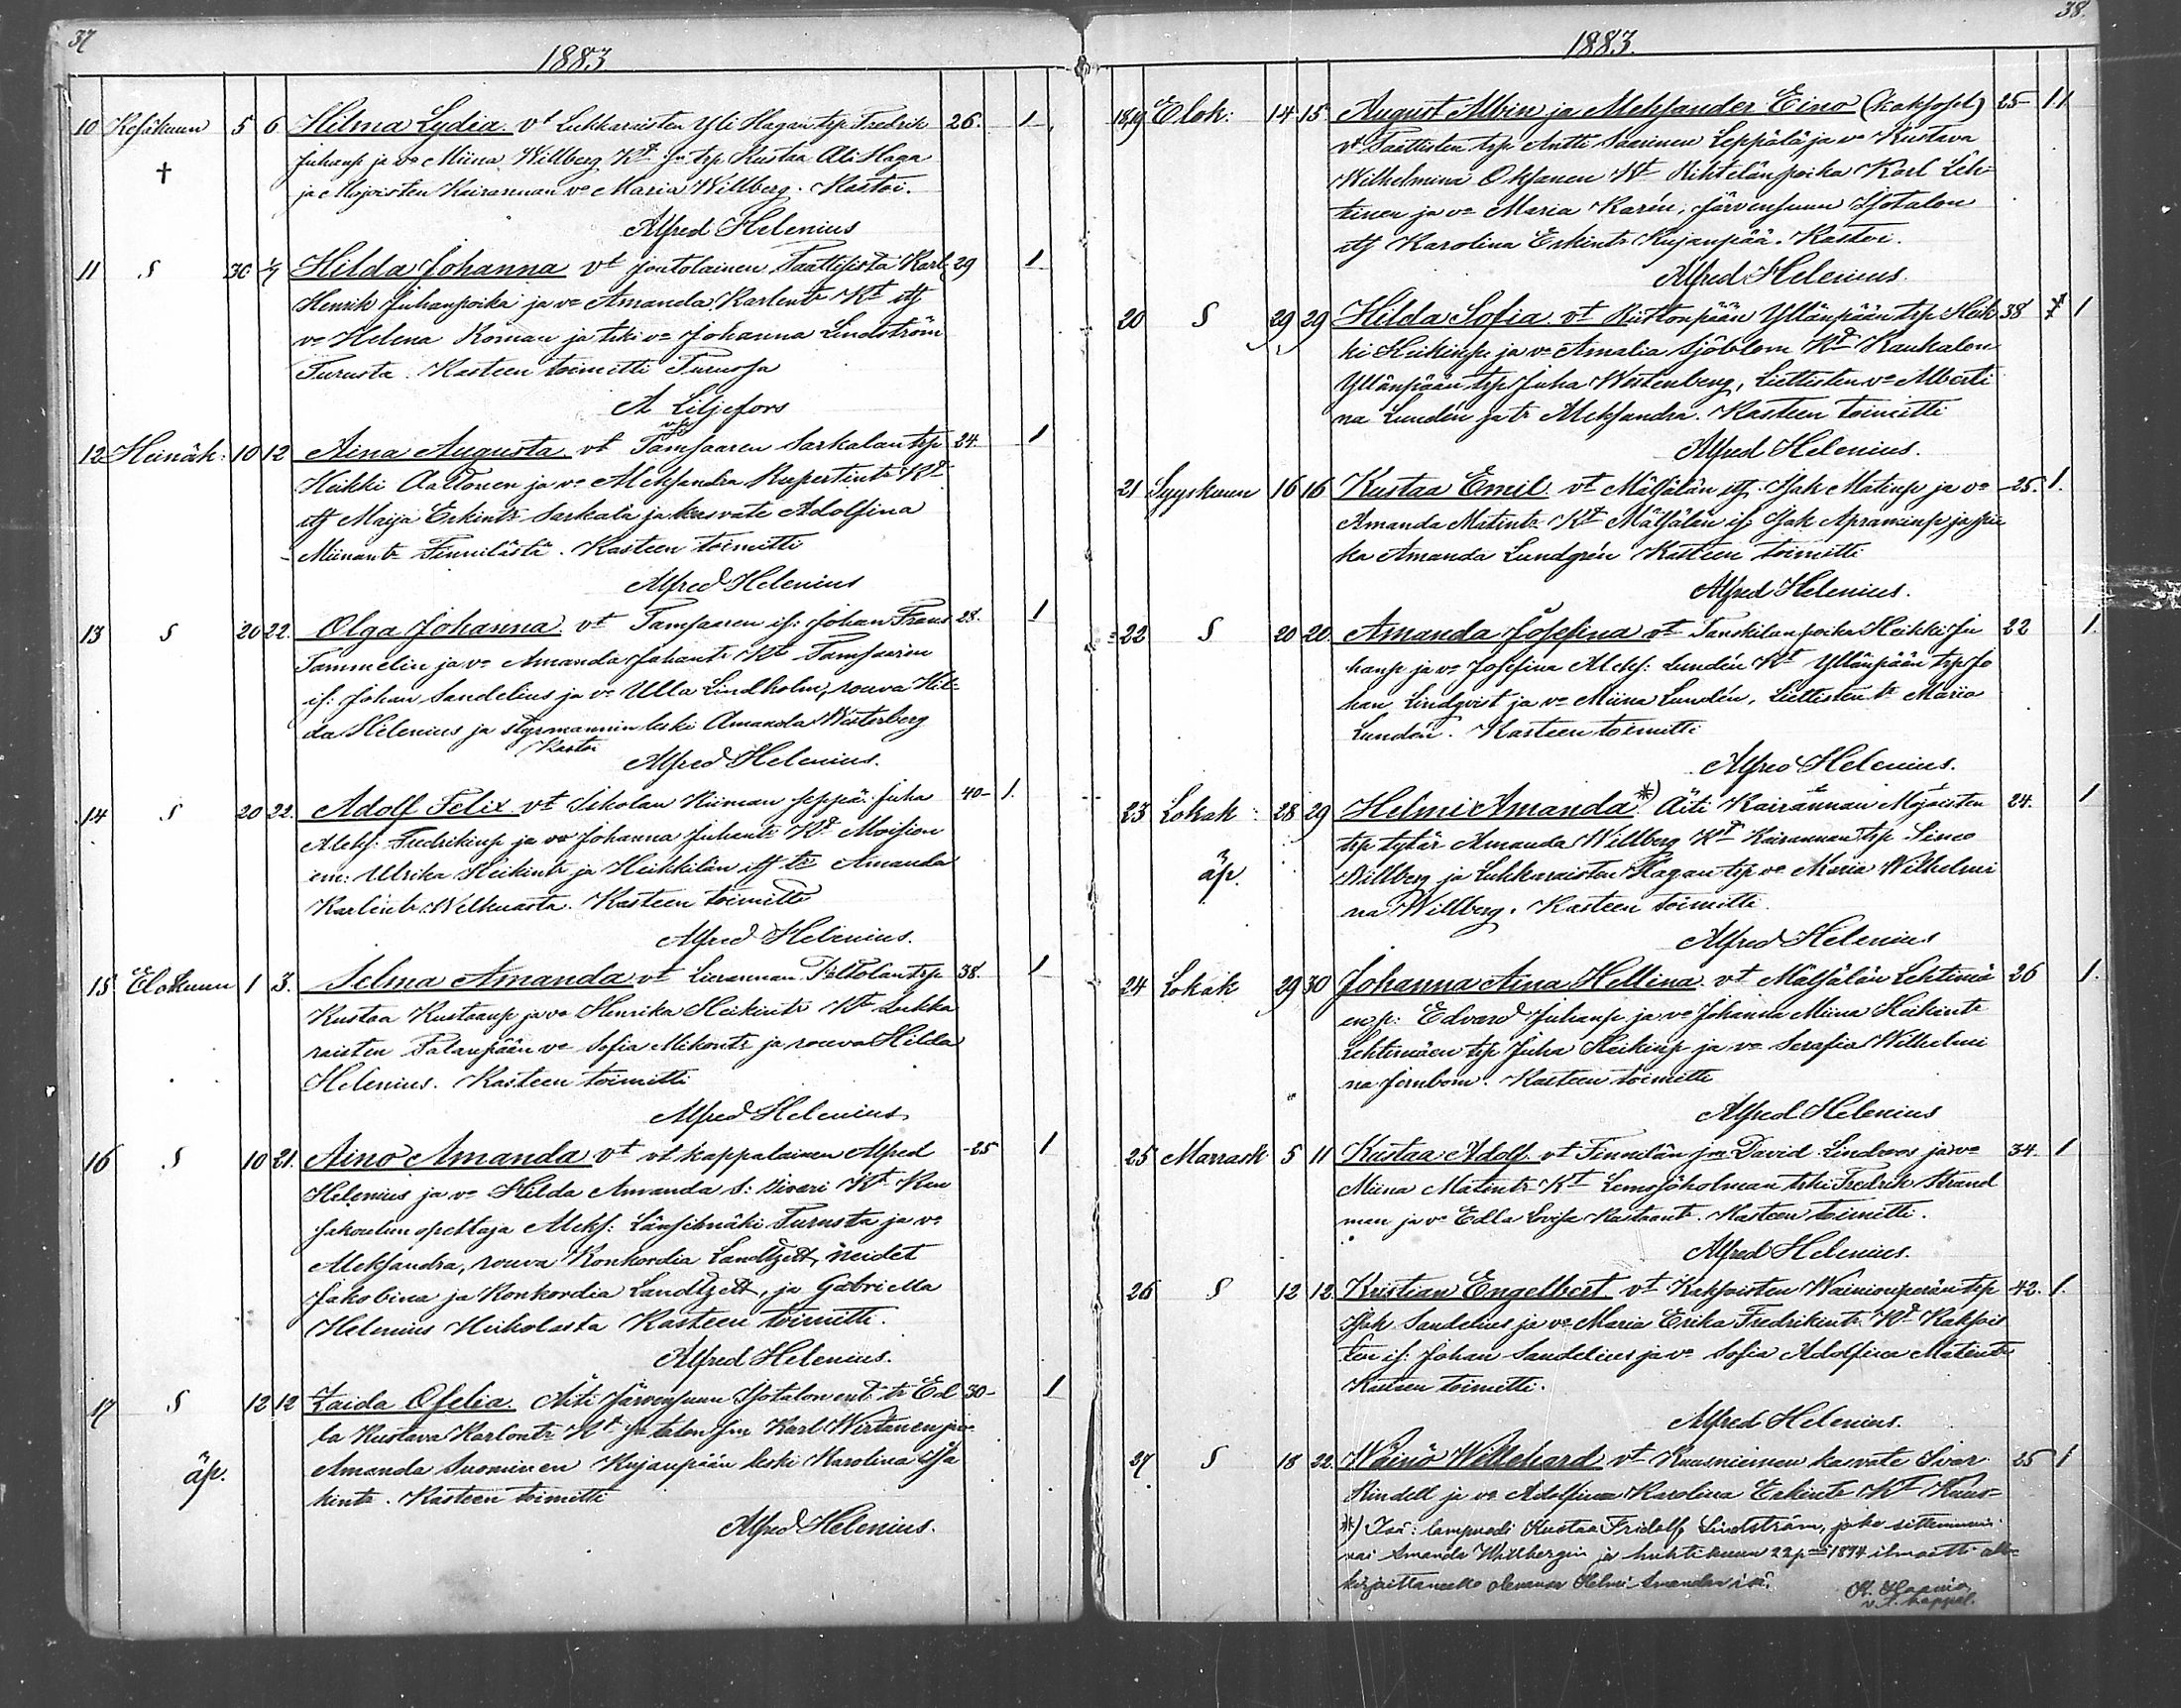 37
1883.
10 Kesäkuun 5 6 Hilma Lydia. vt Lukkaraisten Yli Hagan trp Fredrik 26. 1
Juhanp ja vo Miina Willberg Kt trp Kustaa Ali Haga
† ja Kairannan vo Maria Willberg. Kastoi.
Alfred Helenius
11 S 30 Hilda Johanna vt Taattisista Karl 29 1
Henrik Juhanpoika ja vo Amanda Karlentr Kt itf
vo Helena Roman ja vo Johanna Lindström
Turusta. Kasteen toimitti Turussa
A Liljefors
12 Heinäk: 10 12 Aina Augusta vt Tamsaaren Sarkalan trp 24. 1
Heikki Aaltonen ja vo Aleksandra Rupertintr Kt
itf Maija Erkintr Sarkala ja kasvate Adolfina
Miinantr Finnilästä. Kasteen toimitti
Alfred Helenius
13 S 20 22. Olga Johanna. vt Tamsaaren if: Johan Frans 28. 1
Tammelin ja vo Amanda Juhantr Kt Tamsaaren
if: Johan Sandelius ja vo Ulla Lindholm, rouva Hil-
da Helenius ja styrmannin leski Amanda Westerberg
Kastoi
Alfred Helenius.
14 S 20 22. Adolf Felix vt Riiman seppä Juha 40- 1.
Aleks: Fredrikinp ja vo Johanna Juhantr Kt Moision
em: Ulrika Heikintr ja Heikkilän itf tr Amanda
Karlintr Welkuasta. Kasteen toimitti
Alfred Helenius.
15 Elokuun 1 3. Selma Amanda vt Lierannan Peltolan trp 38. 1
Kustaa Kustaanp ja vo Henrika Heikintr Kt Lukka
raisten Palanpään vo Sofia Mikontr ja rouva Hilda
Helenius. Kasteen toimitti
Alfred Helenius
16 S 10 21. Aino Amanda vt vt kappalainen Alfred -25 1
Helenius ja vo Hilda Amanda s: Siveri Kt Kan
sakoulun opettaja Aleks: Länsimäki Turusta ja vo
Aleksandra, rouva Konkordia Landtzett, neidet
Jakobina ja Konkordia Landtzett, ja Gabriella
Helenius Kasteen toimitti.
Alfred Helenius.
17 S 12 12 Zaida Ofelia. Äiti Järvensuun Isotalon ent: tr Ed 30- 1
la Kustava Karlontr Kt Isotalon Karl Wirtanen ja vo
äp. Amanda Suominen Kujanpään leski Karolina Isa
kintr. Kasteen toimitti
Alfred Helenius.
38.
1883.
18,19 Elok: 14 15 August Albin ja Aleksander Eino (kaksoset) 25- 1.1
vt Taattisten trp Antti Saarinen Leppälä ja vo Kustava
Wilhelmina Oksanen Kt poika Karl Leh-
tinen ja vo Maria Karén, Järvensuun Isotalon
itf Karolina Erkintr Kujanpää. Kastoi.
Alfred Helenius.
20 S 29 29 Hilda Sofia. vt Riistonpään Yllänpään trp Heik 38 1
ki Heikinp ja vo Amalia Sjöblom Kt Kaukalon
Yllänpään trp Juha Westenberg, Liettisten vo Alberti
na Lundén ja tr Aleksandra. Kasteen toimitti
Alfred Helenius.
21 Syyskuun 16 16 Kustaa Emil. vt Mälsälän itf. Isak Matinp ja vo -25. 1.
Amanda Matintr Kt Mälsälän if: Isak Apraminp ja pii
ka Amanda Lundgrén Kasteen toimitti
Alfred Helenius.
22 S 20 20. Amanda Josefina vt Tanskilan poika Heikki Ju 22 1.
hanp ja vo Josefina Aleks: Lundén Kt Yllänpään trp Jo
han Lindqvist ja vo Miina Lundén, Liettisten tr Maria
Lundén. Kasteen toimitti
Alfred Helenius.
23 Lokak: 28 29 Helmi Amanda *) Äiti Kairannan Mojoisten 24. 1
trp tytär Amanda Willberg Kt Kairannan trp Simo
äp. Willberg ja Lukkaraisten Hagan trp vo Maria Wilhelmi
na Willberg. Kasteen toimitti.
Alfred Helenius
24 Lokak 29 30 Johanna Aina Hellina. vt Mälsälän Lehtimä 26 1.
en p: Edvard Juhanp ja vo Johanna Miina Heikintr
Lehtimäen trp Juha Heikinp ja vo Serafia Wilhelmi
na Jernbom. Kasteen toimitti
Alfred Helenius
25 Marrask 5 11 Kustaa Adolf. vt Finnilän David Lindroos ja vo 34 1
Miina Matintr Kt Lemsjöholman Fredrik Strand
man ja vo Edla Lovisa Kustaantr. Kasteen toimitti.
Alfred Helenius.
26 S 12 12. Kristian Engelbert vt Kaksoisten Wainionperän trp 42. 1.
Isak Sandelius ja vo Maria Erika Fredrikintr Kt Kaksois
ten if: Johan Sandelius ja vo Sofia Adolfina Matintr
Kasteen toimitti.
Alfred Helenius.
27 S 18 22. Wäinö Willehard vt Kuusniemen kasvate Ivar 25 1
Rindell ja vo Adolfina Karolina Erkintr Kt Kuus-
*) Isä: lampuodi Kustaa Fridolf Lindström, joka sittemmin
nai Amanda Willbergin ja huhtikuun 22 p 1894 ilmoitti alle-
kirjoittaneelle olevansa Helmi Amandan isä.
v.t. kappal.